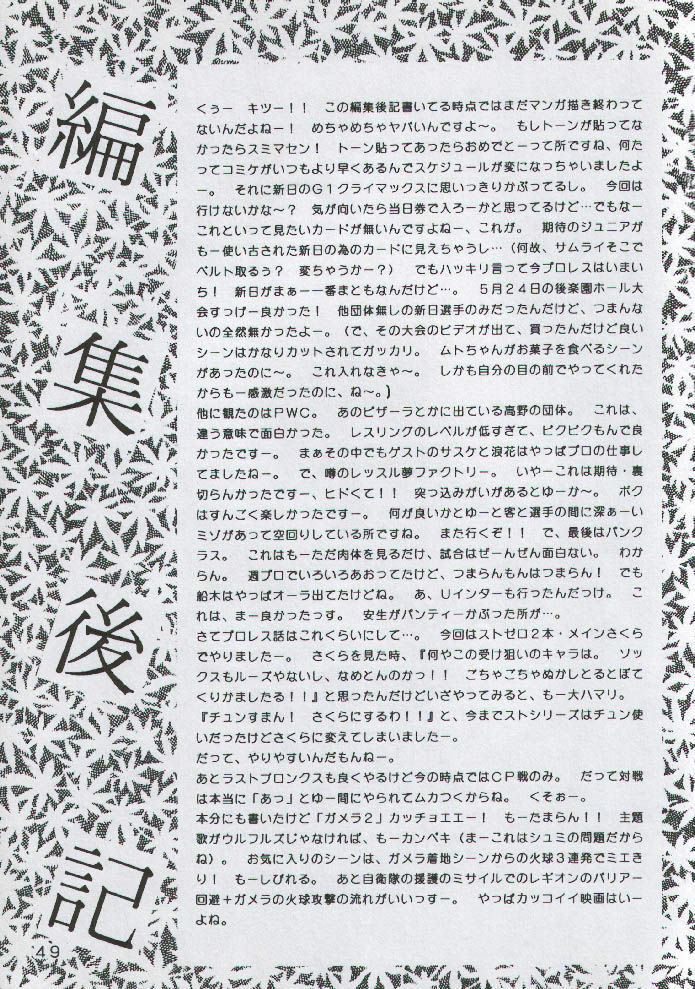 編集後記
くぅー　キツー！！　この編集後記書いてる時点ではまだマンガ描き終わって
ないんだよねー！　めちゃめちゃヤバいんですよ〜。　もしトーンが貼ってな
かったらスミマセン！　トーン貼ってあったらおめでとーって所ですね、何た
ってコミケがいつもより早くあるんでスケジュールが変になっちゃいましたよ
ー。　それに新日のＧ１クライマックスに思いっきりかぶってるし。　今回は
行けないかな〜？　気が向いたら当日券で入ろーかと思ってるけど…でもなー
これといって見たいカードが無いんですよねー、これが。　期待のジュニアが
も一使い古された新日の為のカードに見えちゃうし…（何故、サムライそこで
ベルト取るぅ？　変ちゃうかー？）　でもハッキリ言って今プロレスはいまい
ち！　新日がまぁー一番まともなんだけど…。　５月２４日の後楽園ホール大
会すっげー良かった！　他団体無しの新日選手のみだったんだけど、つまんな
いの全然無かったよー。（で、その大会のビデオが出て、買ったんだけど良い
シーンはかなりカットされてガッカリ。　ムトちゃんがお菓子を食べるシーン
があったのに〜。　これ入れなきゃ〜。　しかも自分の目の前でやってくれた
からもー感激だったのに、ね〜。)
他に観たのはＰＷＣ。　あのピザーラとかに出ている高野の団体。　これは、
違う意味で面白かった。　レスリングのレベルが低すぎて、ピクピクもんで良
かったですー。　まぁその中でもゲストのサスケと浪花はやっぱプロの仕事し
てましたねー。　で、噂のレッスル夢ファクトリー。　いやーこれは期待・裏
切らんかったですー、ヒドくて！！　突っ込みがいがあるとゆーか〜。　ボク
はすんごく楽しかったですー。　何が良いかとゆーと客と選手の間に深ぁーい
ミゾがあって空回りしている所ですね。　また行くぞ！！　で、最後はパンク
ラス。　これはもーただ肉体を見るだけ、試合はぜーんぜん面白ない。　わか
らん。　週プロでいろいろあおってたけど、つまらんもんはつまらん！　でも
船木はやっぱオーラ出てたけどね。　あ、Ｕインターも行ったんだっけ。　こ
れは、まー良かったっす。　安生がパンティーかぶった所が…。
さてプロレス話はこれくらいにして…。　今回はストゼロ２本・メインさくら
でやりましたー。　さくらを見た時、『何やこの受け狙いのキャラは。　ソッ
クスもルーズやないし、なめとんのかっ！！　ごちゃごちゃぬかしとるとぼて
くりかましたる！！』と思ったんだけどいざやってみると、もー大ハマリ。
『チュンすまん！　さくらにするわ！！』と、今までストシリーズはチュン使
いだったけどさくらに変えてしまいましたー。
だって、やりやすいんだもんねー。
あとラストブロンクスも良くやるけど今の時点ではＣＰ戦のみ。　だって対戦
は本当に「あっ」とゆー間にやられてムカつくからね。　くそぉー。
本分にも書いたけど「ガメラ２」カッチョエエー！　もーたまらん！！　主題
歌がウルフルズじゃなければ、もーカンペキ（まーこれはシュミの問題だから
ね）。　お気に入りのシーンは、ガメラ着地シーンからの火球３連発でミエき
り！　もーしびれる。　あと自衛隊の援護のミサイルでのレギオンのバリアー
回避＋ガメラの火球攻撃の流れがいいっすー。　やっぱカッコイイ映画はいー
よね。
49